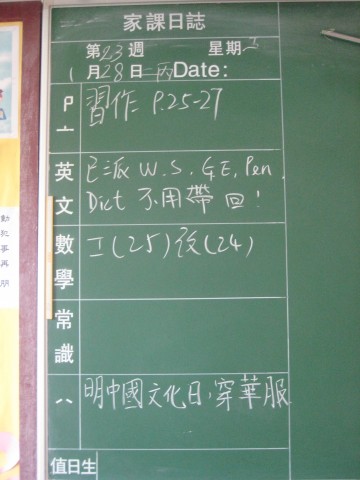 家課日誌
第23週 星期二
1月28日 二丙Date:
習作 P.25-27
英文
已派 W.S. G.E, Pen.
Dict 不用帶回!
數學
I(25)後(24)
常識
明中國文化日,穿華服
值日生
動犯事再朋